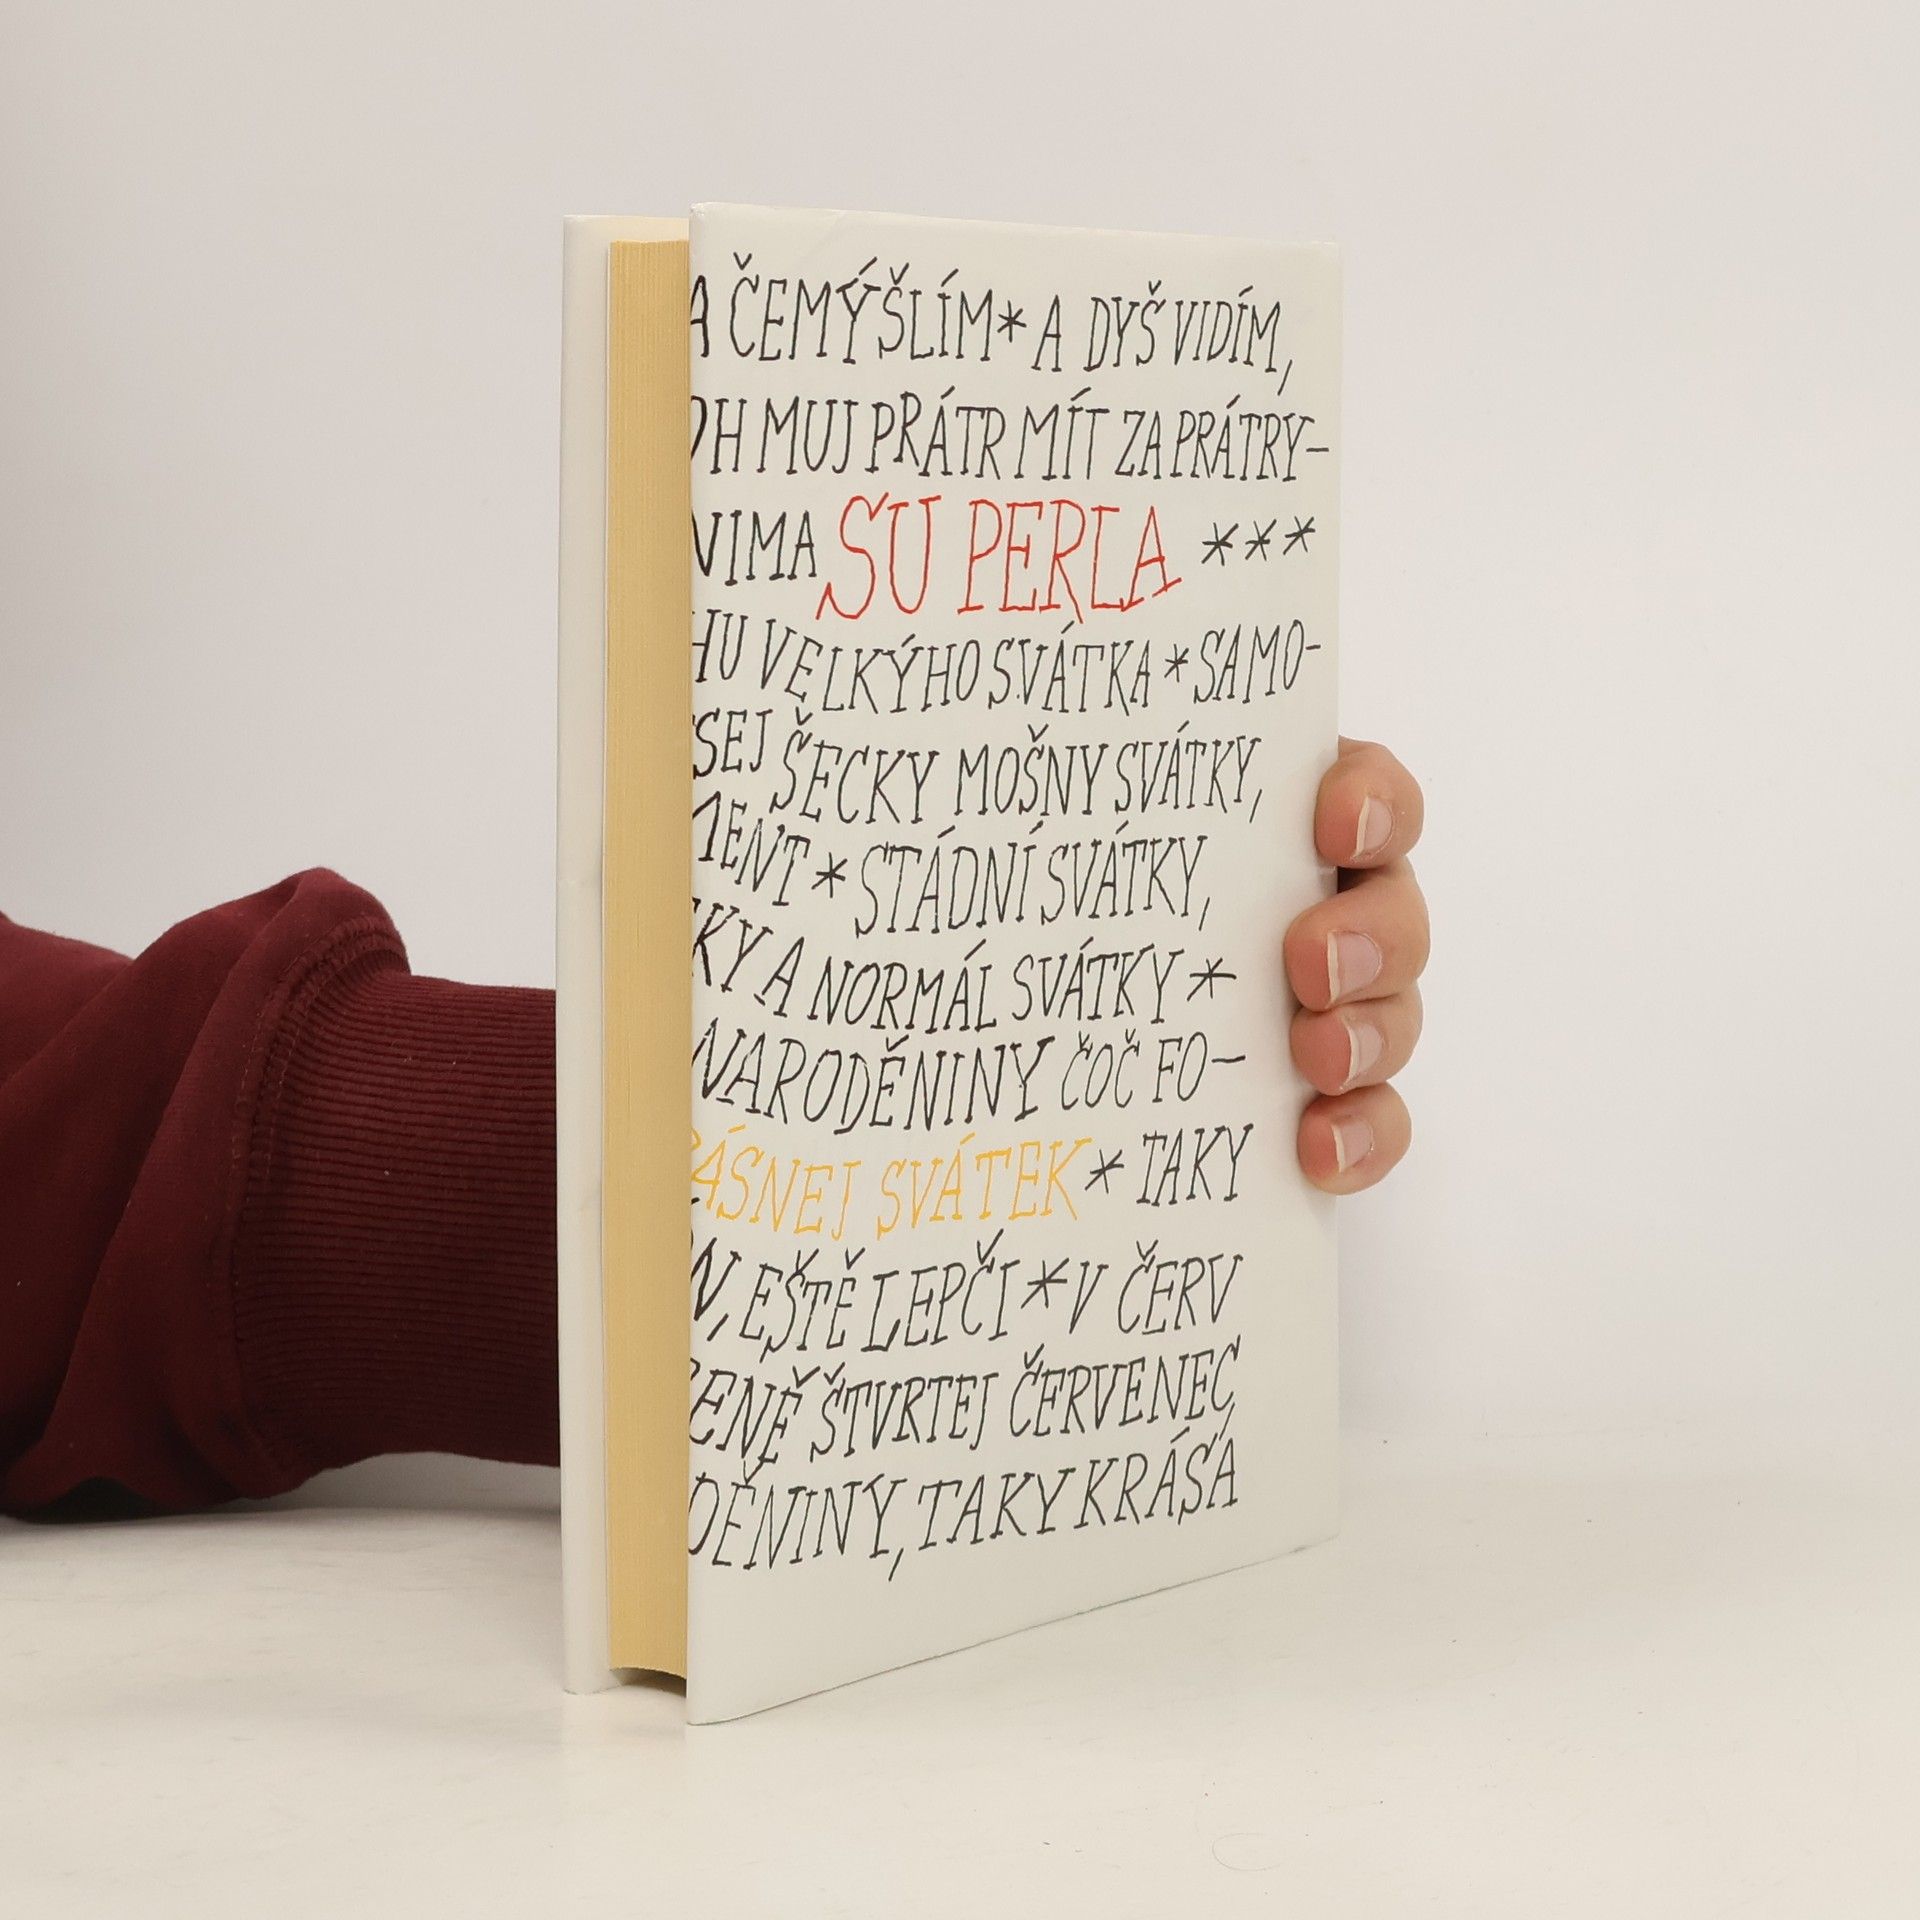 A ČEMÝŠLÍM * A DYŠ VIDÍM,
OH MUJ PRÁTR MÍT ZA PRÁTRY-
NIMA SU PERLA ***
HU VELKÝHO SVÁTKA * SAMO-
SEJ ŠECKY MOŠNY SVÁTKY,
MENT * STÁDNÍ SVÁTKY,
KY A NORMÁL SVÁTKY *
NARODĚNINY ČOČ FO-
ÁSNEJ SVÁTEK * TAKY
N, EŠTĚ LEPČI * V ČERV
ENĚ ŠTVRTEJ ČERVENEC,
DĚNINY, TAKY KRÁSÁ